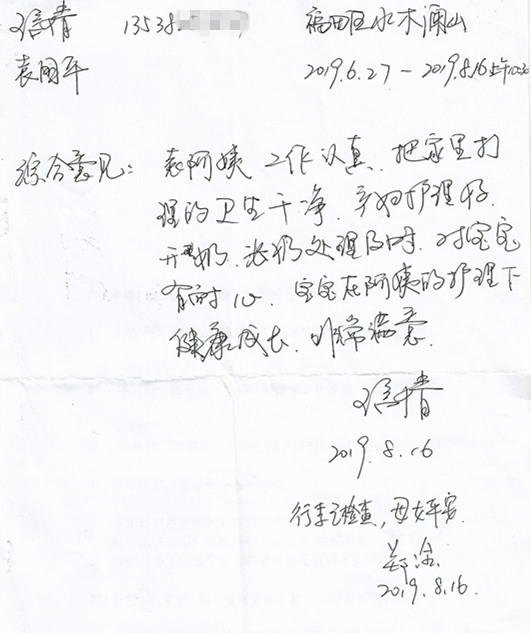 13538 福田区水木澜山
袁国平 2019.6.27-2019.8.16上午
综合意见: 袁阿姨工作认真, 把家里打
理的卫生干净, 孕妇护理好.
开奶. 涨奶处理及时. 对宝宝
有耐心. 宝宝在阿姨的护理下
健康成长. 非常满意.
2019.8.16
行李已检查, 母女平安.
郑
2019.8.16.